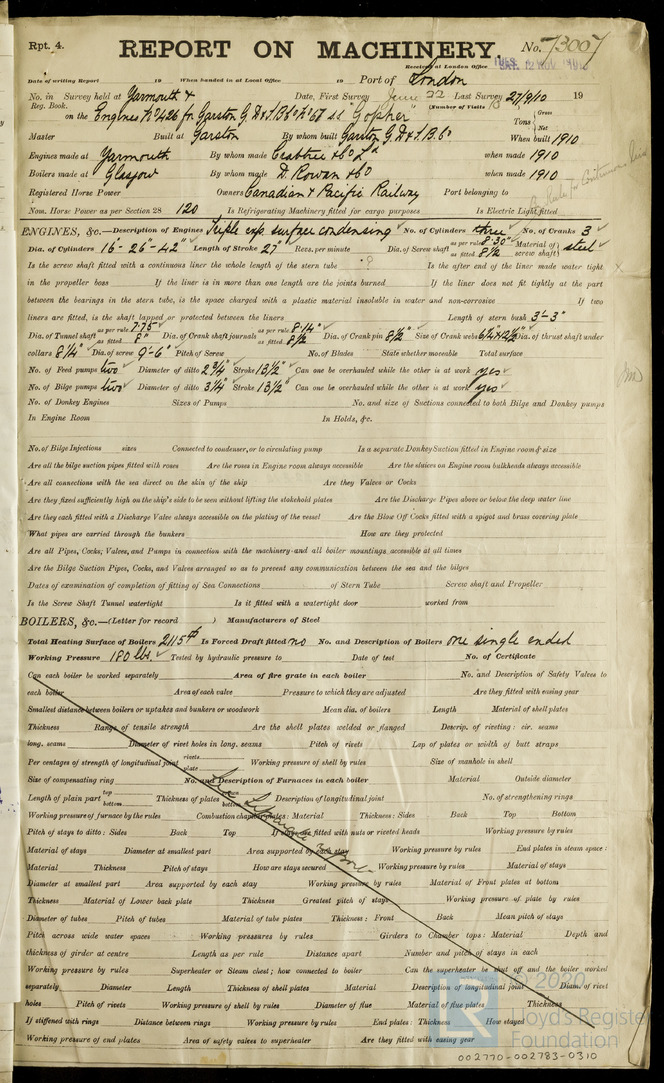 Rpt. 4.
REPORT ON MACHINERY.
No. 73007
Received at London Office
TUES. SAT. 12 NOV. 1910
Date of writing Report 19 When handed in at Local Office 19 Port of London
No. in Survey held at Yarmouth & Date, First Survey June 22 Last Survey 27/9/10 19
Reg. Book. (Number of Visits 13
on the Engines No 426 for Garston G. D. & S. B. Co No 67 ss "Gopher" Tons { Gross Net
Master Built at Garston By whom built Garston G. D. & S. B. Co When built 1910
Engines made at Yarmouth By whom made Crabtree & Co Ld when made 1910
Boilers made at Glasgow By whom made D. Rowan & Co when made 1910
Registered Horse Power Owners Canadian & Pacific Railway Port belonging to
Nom. Horse Power as per Section 28 120 Is Refrigerating Machinery fitted for cargo purposes Is Electric Light fitted
ENGINES, &c.—Description of Engines Triple exp. surface condensing No. of Cylinders three No. of Cranks 3
Dia. of Cylinders 16"-26"-42" Length of Stroke 27" Revs. per minute Dia. of Screw shaft as per rule 8.30" as fitted 8 1/2 Material of screw shaft) steel
Is the screw shaft fitted with a continuous liner the whole length of the stern tube ? Is the after end of the liner made water tight x
in the propeller boss If the liner is in more than one length are the joints burned If the liner does not fit tightly at the part
between the bearings in the stern tube, is the space charged with a plastic material insoluble in water and non-corrosive If two
liners are fitted, is the shaft lapped or protected between the liners Length of stern bush 3'-3"
Dia. of Tunnel shaft as per rule 7.75 as fitted 8" Dia. of Crank shaft journals as per rule 8.14" as fitted 8 1/2 Dia. of Crank pin 8 1/2" Size of Crank webs 6 1/4"x12 1/2" Dia. of thrust shaft under
collars 8 1/4" Dia. of screw 9'-6" Pitch of Screw No. of Blades State whether moveable Total surface
No. of Feed pumps two Diameter of ditto 2 3/4" Stroke 13 1/2" Can one be overhauled while the other is at work yes
No. of Bilge pumps two Diameter of ditto 3 1/4" Stroke 13 1/2" Can one be overhauled while the other is at work yes
No. of Donkey Engines Sizes of Pumps No. and size of Suctions connected to both Bilge and Donkey pumps
In Engine Room In Holds, &c.
No. of Bilge Injections sizes Connected to condenser, or to circulating pump Is a separate Donkey Suction fitted in Engine room & size
Are all the bilge suction pipes fitted with roses Are the roses in Engine room always accessible Are the sluices on Engine room bulkheads always accessible
Are all connections with the sea direct on the skin of the ship Are they Valves or Cocks
Are they fixed sufficiently high on the ship's side to be seen without lifting the stokehold plates Are the Discharge Pipes above or below the deep water line
Are they each fitted with a Discharge Valve always accessible on the plating of the vessel Are the Blow Off Cocks fitted with a spigot and brass covering plate
What pipes are carried through the bunkers How are they protected
Are all Pipes, Cocks, Valves, and Pumps in connection with the machinery and all boiler mountings accessible at all times
Are the Bilge Suction Pipes, Cocks, and Valves arranged so as to prevent any communication between the sea and the bilges
Dates of examination of completion of fitting of Sea Connections of Stern Tube Screw shaft and Propeller
Is the Screw Shaft Tunnel watertight Is it fitted with a watertight door worked from
BOILERS, &c.—(Letter for record ) Manufacturers of Steel
Total Heating Surface of Boilers 2115 Is Forced Draft fitted no No. and Description of Boilers one single ended
Working Pressure 180 lbs. Tested by hydraulic pressure to Date of test No. of Certificate
Can each boiler be worked separately Area of fire grate in each boiler No. and Description of Safety Valves to
each boiler Area of each valve Pressure to which they are adjusted Are they fitted with easing gear
Smallest distance between boilers or uptakes and bunkers or woodwork Mean dia. of boilers Length Material of shell plates
Thickness Range of tensile strength Are the shell plates welded or flanged Descrip. of riveting: cir. seams
long. seams Diameter of rivet holes in long. seams Pitch of rivets Lap of plates or width of butt straps
Per centages of strength of longitudinal joint rivets plate Working pressure of shell by rules Size of manhole in shell
Size of compensating ring No. and Description of Furnaces in each boiler Material Outside diameter
Length of plain part top bottom Thickness of plates bottom Description of longitudinal joint No. of strengthening rings
Working pressure of furnace by the rules Combustion chamber plates: Material Thickness: Sides Back Top Bottom
Pitch of stays to ditto: Sides Back Top If stays are fitted with nuts or riveted heads Working pressure by rules
Material of stays Diameter at smallest part Area supported by each stay Working pressure by rules End plates in steam space:
Material Thickness Pitch of stays How are stays secured Working pressure by rules Material of stays
Diameter at smallest part Area supported by each stay Working pressure by rules Material of Front plates at bottom
Thickness Material of Lower back plate Thickness Greatest pitch of stays Working pressure of plate by rules
Diameter of tubes Pitch of tubes Material of tube plates Thickness: Front Back Mean pitch of stays
Pitch across wide water spaces Working pressures by rules Girders to Chamber tops: Material Depth and
thickness of girder at centre Length as per rule Distance apart Number and pitch of stays in each
Working pressure by rules Superheater or Steam chest; how connected to boiler Can the superheater be shut off and the boiler worked
separately Diameter Length Thickness of shell plates Material Description of longitudinal joint Diam. of rivet
holes Pitch of rivets Working pressure of shell by rules Diameter of flue Material of flue plates Thickness
If stiffened with rings Distance between rings Working pressure by rules End plates: Thickness How stayed
Working pressure of end plates Area of safety valves to superheater Are they fitted with easing gear
© 2020
Lloyd's Register
Foundation
002770-002783-0310